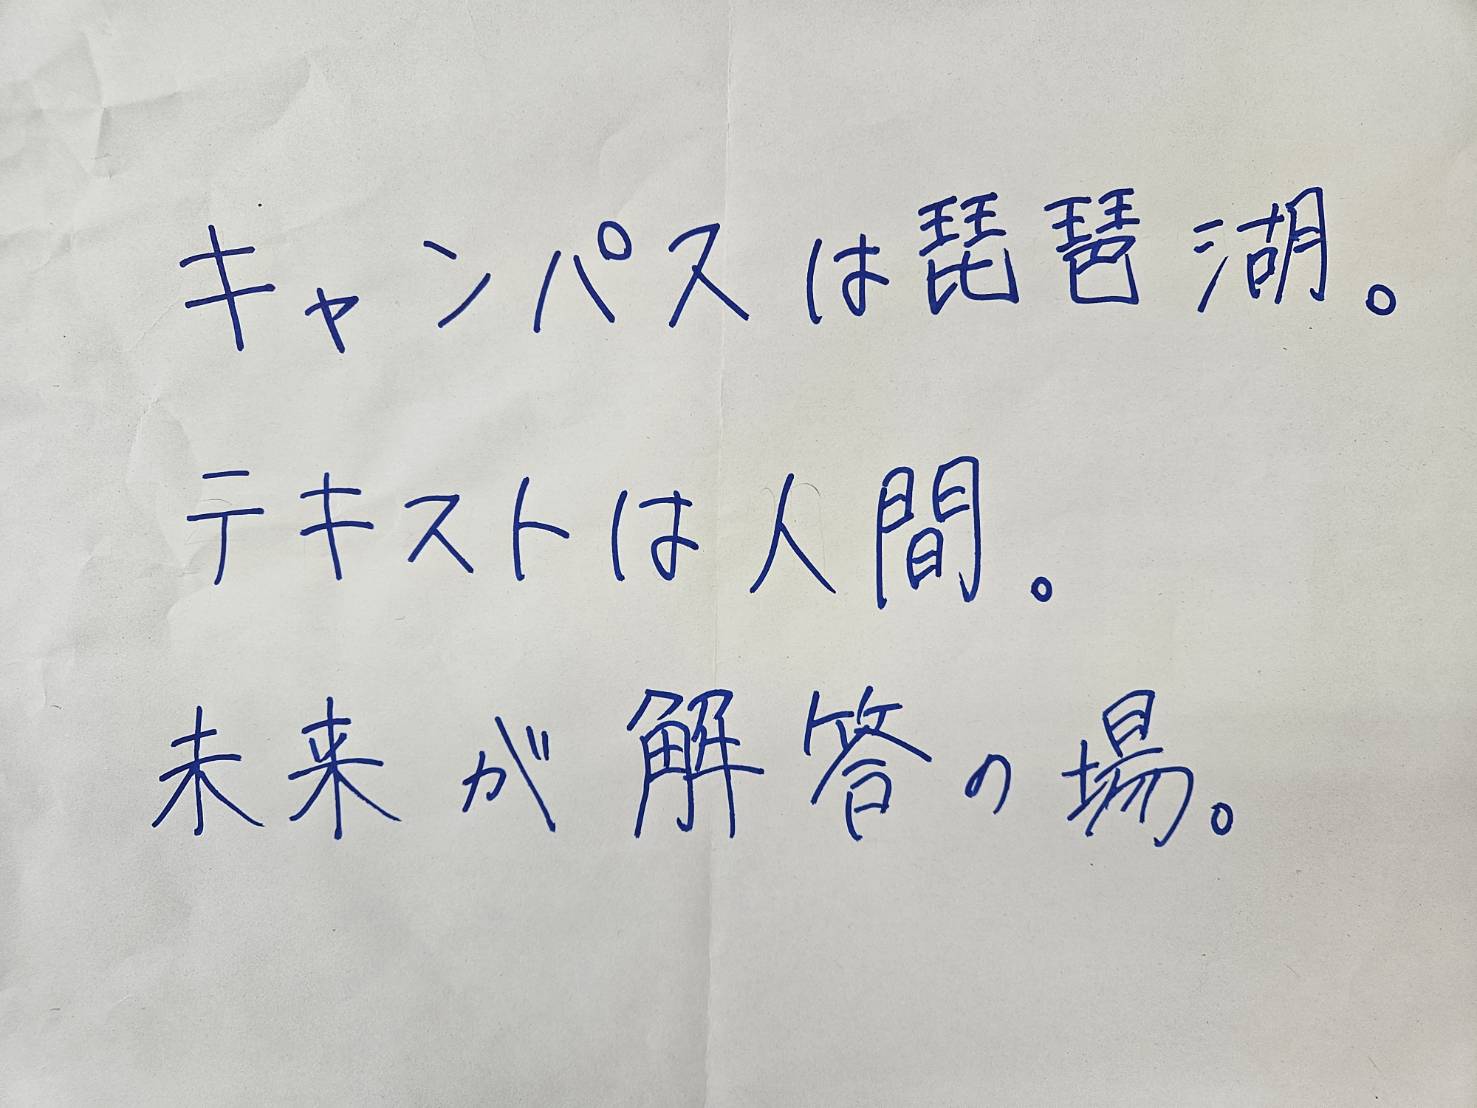 キャンパスは琵琶湖。
テキストは人間。
未来が解答の場。